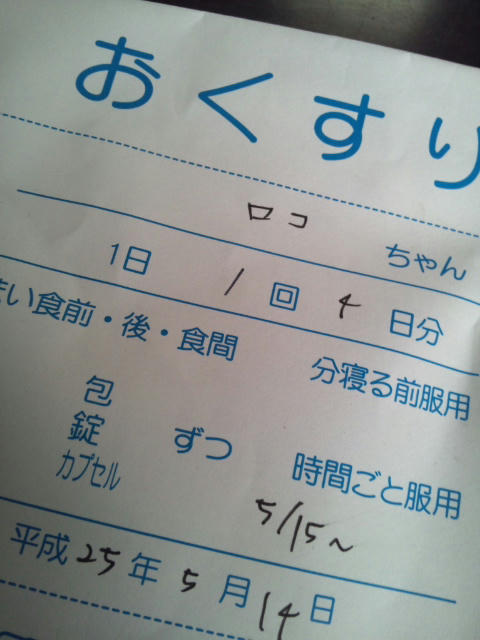 おくすり
ロコ ちゃん
1日 1 回 4 日分
い食前・後・食間
分寝る前服用
包
錠 ずつ
カプセル
時間ごと服用
5/15~
平成 25 年 5 月 14 日